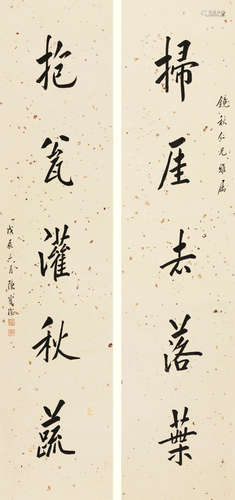 掃厓去落葉
鏡秋仁兄雅屬
抱瓮灌秋蔬
戊辰六月陳